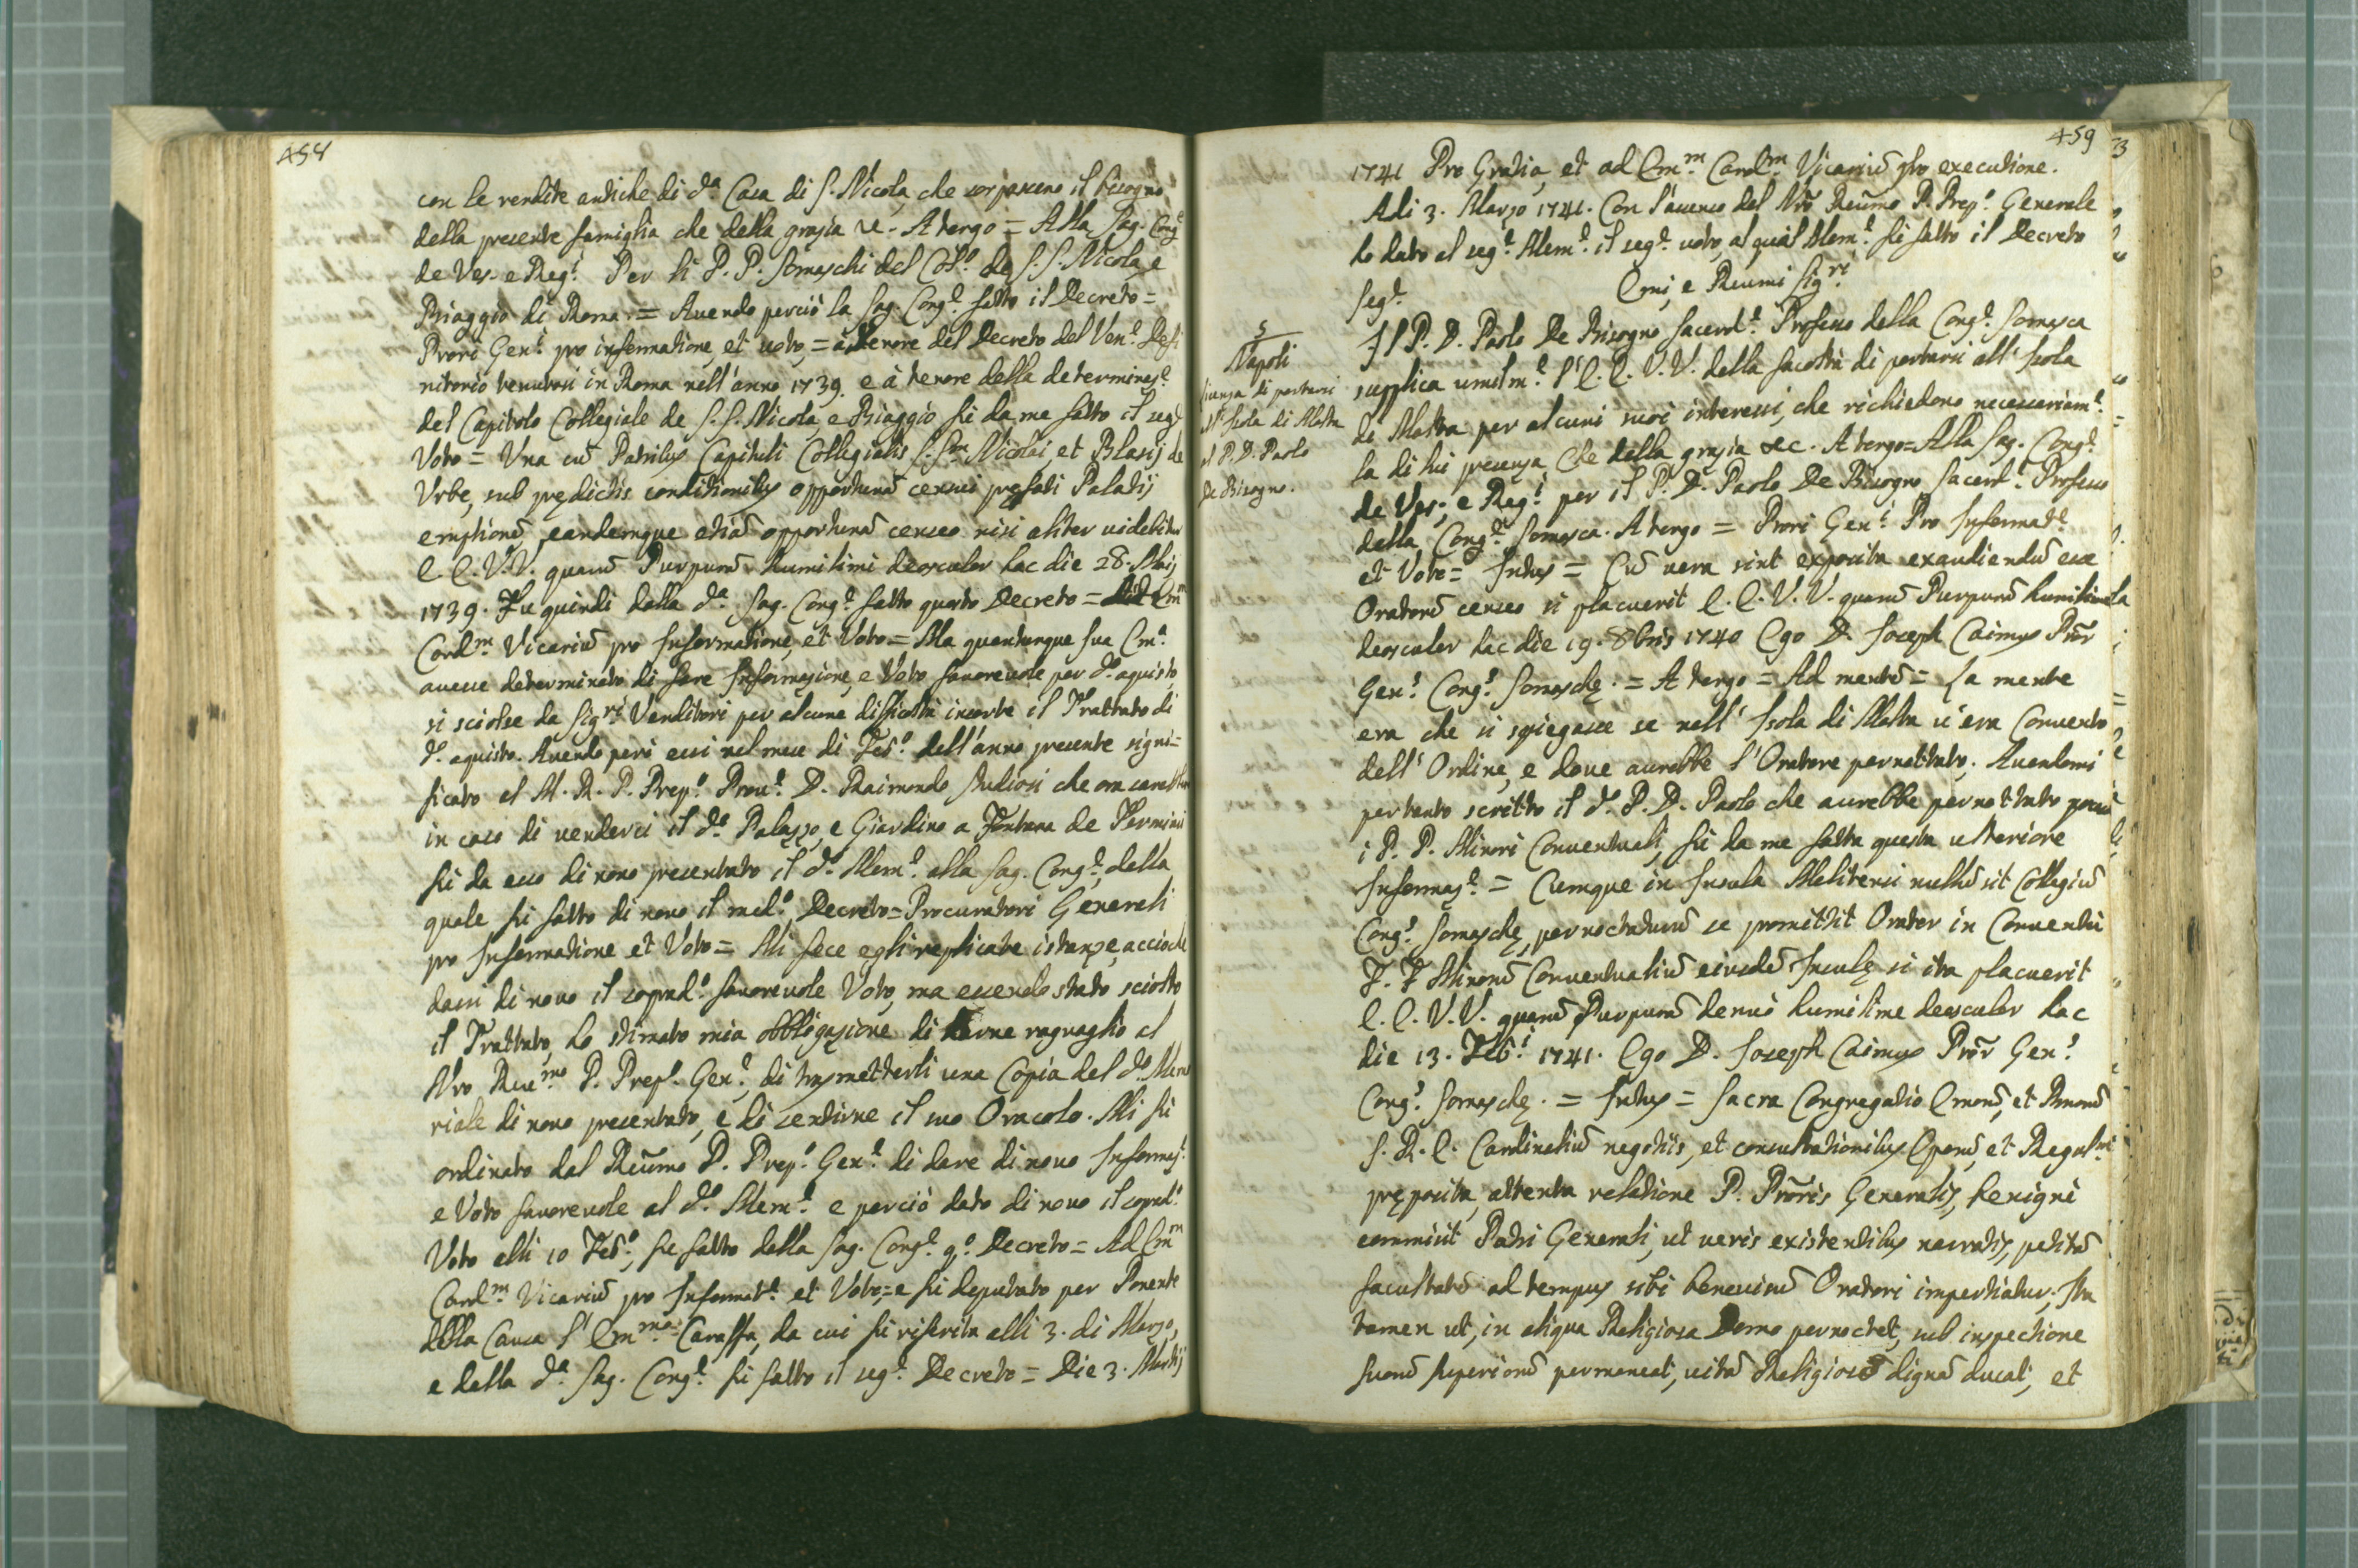 458
con le rendite antiche di d.ª Casa di S. Nicola, che sorpassano il bisogno
della presente famiglia che della grazia &c. A tergo = Alla Sag. Cong.ᵉ
de Ves. e Reg.ⁱ Per li P. P. Somaschi del Col.º de S.S. Nicola, e
Biaggio di Roma = Avendo perciò la Sag. Cong.ᵉ fatto il Decreto =
Prori Gen.ˡⁱ pro informatione, et voto, = à tenore del Decreto del Ven.ᵉ Defi
nitorio tenutosi in Roma nell'anno 1739. e à tenore della determinaz.ᵉ
del Capitolo Collegiale de S.S. Nicola, e Biaggio fù da me fatto il seg.ᵉ
Voto = Una cū Patribus Capituli Collegialis S.S.ʳᵐ Nicolai et Blasij de
Urbe, sub prędictis conditionibus opportunā censui pręfati Palatij
emptionē, eandemque etiā opportunā censeo nisi aliter videbitur
E. E. V.V. quarū Purpurā humilimè deosculor hac die 28. Maij
1739. Fù quindi dalla d.ª Sag. Cong.ᵉ fatto questo Decreto = Ad Em̄
Card.ᵐ Vicariū pro Informatione, et Voto = Ma quantunque Sua Em.ª
avesse determinato di fare Informazione, e Voto favorevole per d.º aquisto,
si sciolse da Sig.ʳⁱ Venditori per alcune difficoltà insorte il Trattato di
d.º aquisto. Avendo però essi nel mese di Feb.º dell'anno presente signi=
ficato al M. R. P. Prep.º Prov.ᵉ D. Raimondo Studiosi che
in caso di venderci il d.º Palazzo, e Giardino a Fontana de Termini
fù da esso di novo presentato il d.º Mem.ᵉ alla Sag. Cong.ᵉ, dalla
quale fù fatto di novo il med.º Decreto = Procuratori Generali
pro Informatione et Voto = Mi fece egli replicate istanze, acciochè
dassi di novo il soprad.º favorevole Voto, ma essendo stato sciolto
il Trattato, ho stimato mia obbligazione di darne raguaglio al
Nr̄o Rev.ᵐᵒ P. Prep. Gen.ᵉ, di trasmetterli una Copia del d.º Memo
riale di novo presentato, e di sentirne il suo Oracolo. Mi fù
ordinato dal Reūmo P. Prep.º Gen.ᵉ di dare di novo Informaz.ᵉ
e Voto favorevole al d.º Mem.ᵉ e perciò dato di novo il soprad.º
Voto alli 10 Feb.º, fù fatto dalla Sag. Cong.ᵉ q.º Decreto = Ad Em̄
Card.ᵐ Vicariū pro Informat.ᵉ et Voto, = e fù deputato per Ponente
della Causa l'Em̄.ᵐᵒ Caraffa, da cui fù riferita alli 3. di Marzo,
e dalla d.ª Sag. Cong.ᵉ fù fatto il seg.ᵉ Decreto = Die 3. Martij
459
1741 Pro Gratia, et ad Em.ᵐ Card.ᵐ Vicariū pro executione.
Adi 3. Marzo 1741. Con l'assenso del Nr̄o Reūmo P. Prep.º Generale
ho dato al seg.ᵉ Mem.ᵉ il seg.ᵉ voto, al qual Mem.ᵉ fù fatto il Decreto
seg.ᵉ Emi, e Reumi Sig.ʳⁱ
5
Napoli
licenza di portarsi
all'Isola di Malta
al P. D. Paolo
De Bisogno.
Il P. D. Paolo De Bisogno Sacerd.ᵉ Professo della Cong.ᵉ Somasca
supplica umilm.ᵉ l'E. E. V.V. della facoltà di portarsi all'Isola
di Malta per alcuni suoi interessi, che richiedono necessariam.ᵉ
la di lui presenza, Che della grazia &c. A tergo = Alla Sag. Cong.ᵉ
de Ves., e Reg.ⁱ per il P. D. Paolo De Bisogno Sacerd.ᵉ Professo
della Cong.ᵉ Somasca. A tergo = Prori Gen.ˡⁱ Pro Informat.ᵉ
et Voto = Intus = Cū vera sint exposita exaudiendū esse
Oratorē censeo si placuerit E. E. V. V. quarū Purpurā humilimè
deosculor hac die 19. 8bris 1740 Ego D. Joseph Caimus Pr̄or
Gen.ˢ Cong.ˢ Somaschę. = A tergo = Ad mentē = La mente
era che si spiegasse se nell'Isola di Malta v'era Convento
dell'Ordine, e dove avrebbe l'Oratore pernottato. Avendomi
pertanto scritto il d.º P. D. Paolo che avrebbe pernottato presso
i P. P. Minori Conventuali, fù da me fatta questa ulteriore
Informaz.ᵉ = Cumque in Insula Melitensi nullū sit Collegiū
Cong.ˢ Somaschę, pernoctaturū se promittit Orator in Conventu
F. F Minorū Conventualiū eiusdē Insulę si ita placuerit
E. E. V.V. quarū Purpurā denuò humilime deosculor hac
die 13. Feb.ⁱ 1741. Ego D. Joseph Caimus Pr̄or Gen.ˢ
Cong.ˢ Somaschę. = Intus = Sacra Congregatio Emorū, et Rmorū
S. R. E. Cardinaliū negotiis, et consultationibus Eporū, et Regulariū
pręposita, attenta relatione P. Pr̄oris Generalis, benignè
commisit Patri Generali, ut veris existentibus narratis, petitā
facultatē ad tempus sibi benevisū Oratori impertiatur. Ita
tamen ut, in aliqua Religiosa Domo pernoctet, sub inspectione
suorū superiorū permaneat, vitā Religioso dignā ducat, et